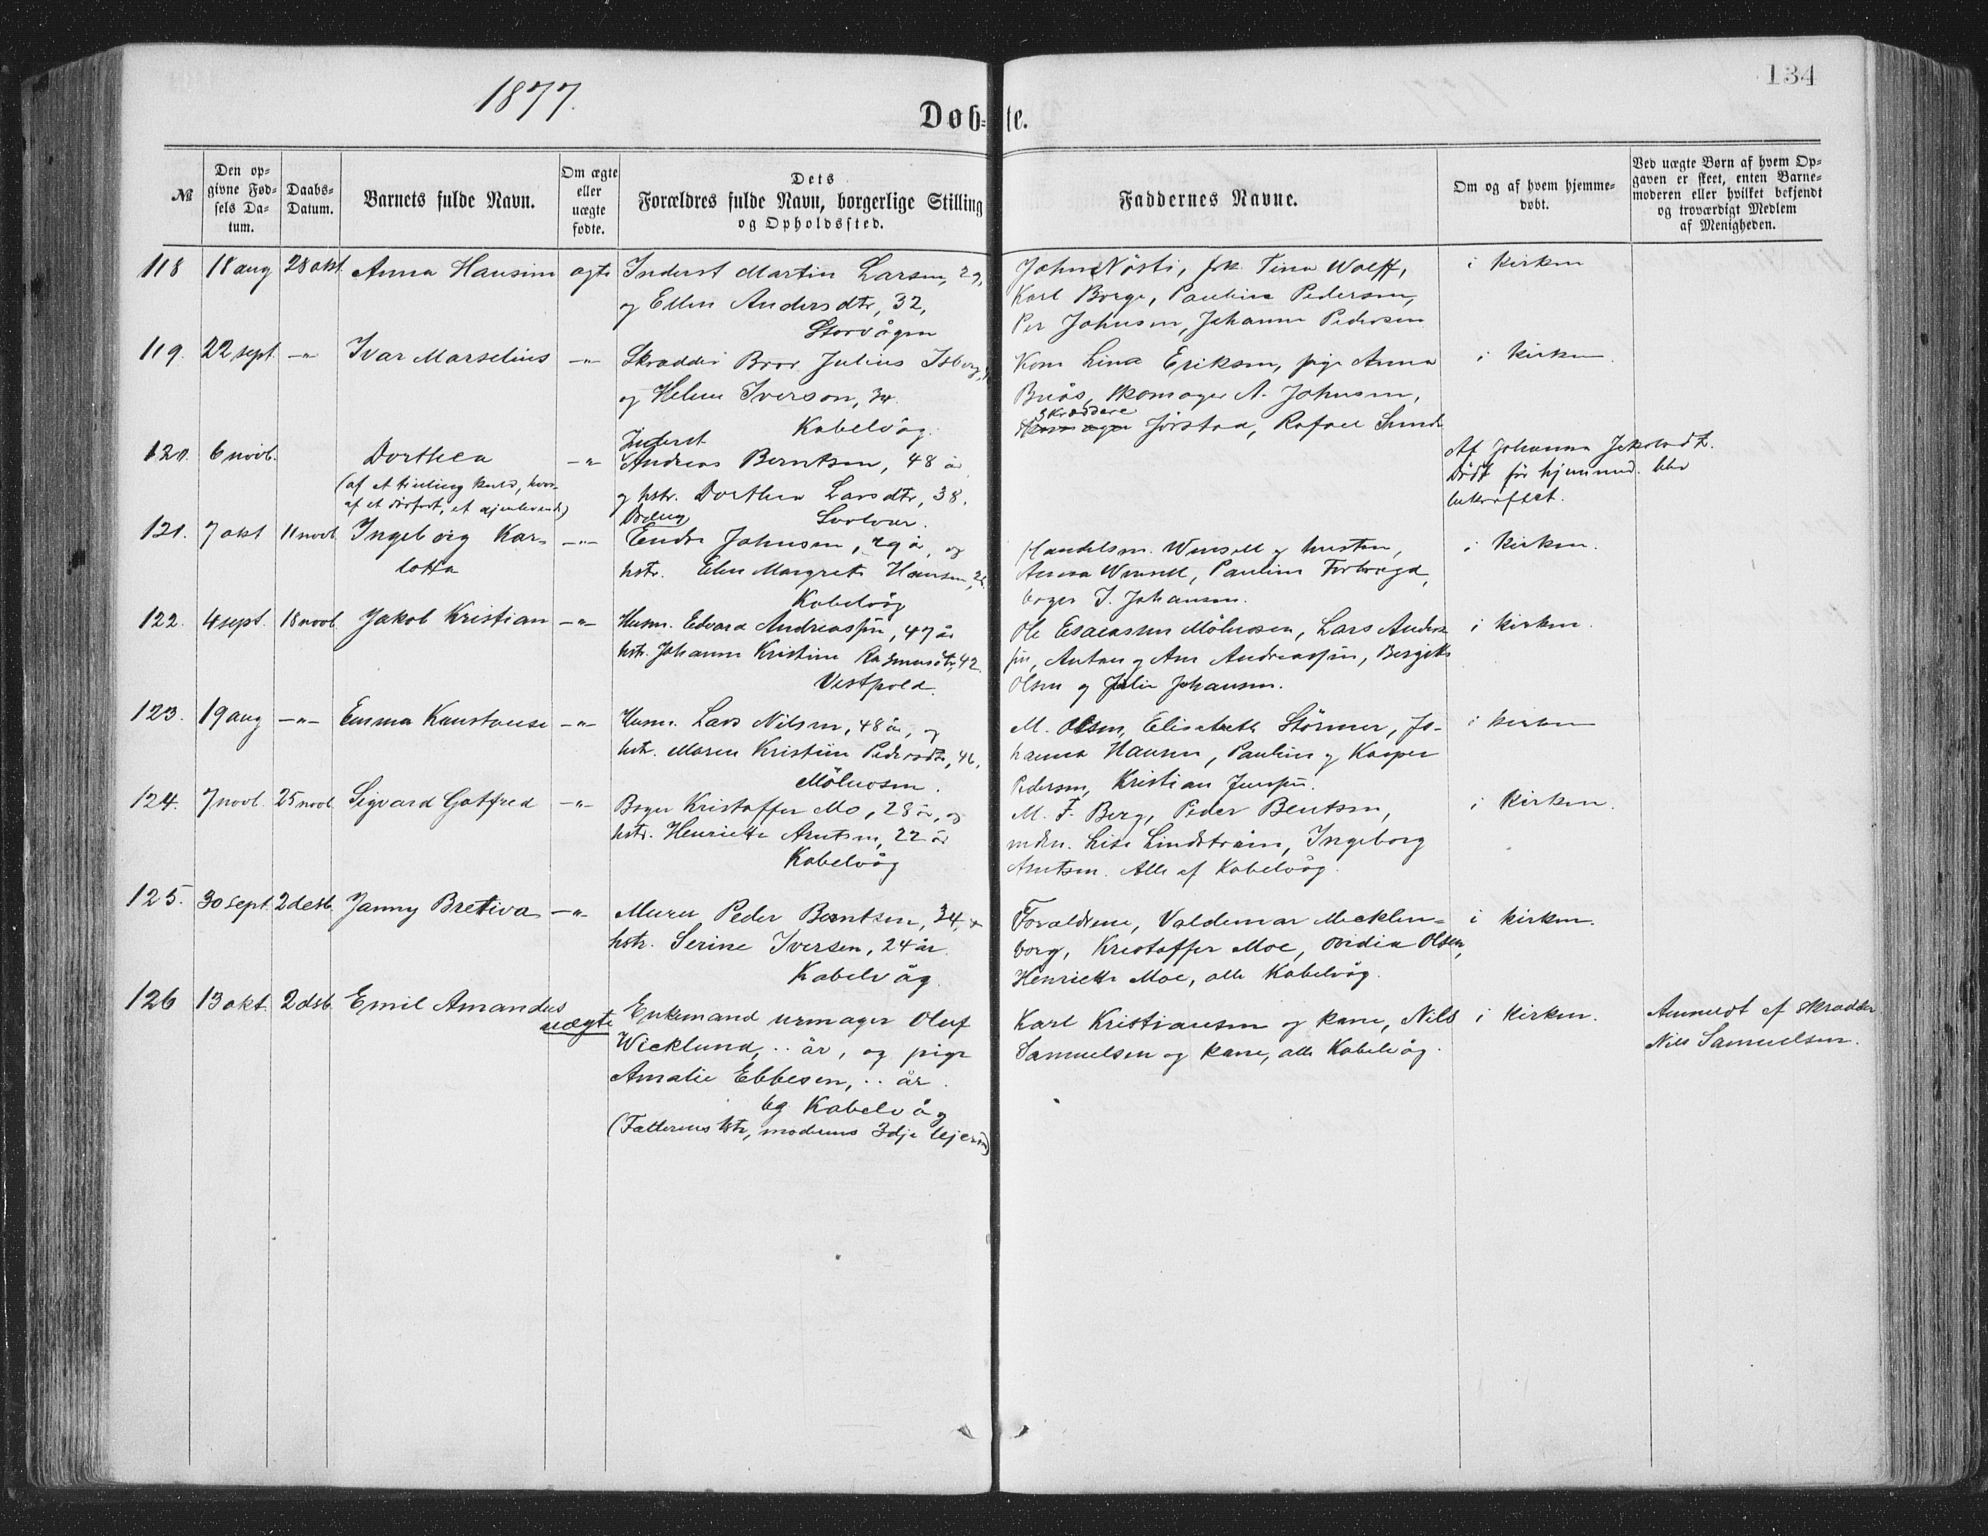 1877.
134
Døb=te.
№
Den op-
givne Fød-
sels Da-
tum.
Daabs-
Datum.
Barnets fulde Navn.
Om ægte
eller
uægte
fødte.
Dets
Forældres fulde Navn, borgerlige Stilling
og Opholdssted.
Faddernes Navne.
Om og af hvem hjemme-
døbt.
Ved uægte Børn af hvem Op-
gaven er skeet, enten Barne-
moderen eller hvilket bekjendt
og troværdigt Medlem
af Menigheden.
118 18 aug 28 okt. Anna Hansine ægte Inderst Martin Larsen, 29,
og Ellen Andersdtr, 32,
Storvågen
John Nøsti, Tina Wolff,
Karl Borge, Pauline Pedersen,
Per Johnsen, Johanne Pedersen
i kirken
119. 22 sept. -„- Ivar Marselius -„- Skrædder Bror Julius Isberg,
og Helene Iverson, 34.
Kabelvåg.
Kone Lina Eriksen, pige Anna
Buås, skomager A. Johnsen,
skræddere
Jörstad, Rafael
i kirken.
120. 6 novb. Dorthea -„- Inderst
Andreas Berntsen, 48 år
(af et tvilling kuld, hvor-
af et dødfødt, et ojenlevende)
og hstr. Dorthea Larsdtr, 38.
Svolvær.
Af Johanna Jakobsdtr.
Död för hjemmed. blev
bekræftet.
121. 7 okt 11 novb. Ingeborg Kar-
lotta -„- Endre Johnsen, 29 år, og
hstr. Elen Margrete Hansen,
Kabelvåg
Handelsm. Winsell og hustru,
Anna Winsell, Pauline
bager J. Johansen.
i kirken.
122. 4 sept. 18 novb. Jakob Kristian -„- Husm. Edvard Andreassen, 47 år
hstr. Johanne Kristine Rasmusdtr, 42.
Vestpold.
Ole Esaiassen Mölnosen, Lars Anders
sen, Anton og Ane Andreassen, Bergitte
Olsen og Julie Johansen.
i kirken.
123. 19 aug -„- Emma Konstanse -„- Husm. Lars Nilsen, 48 år, og
hstr. Maren Kristine Pedersdtr, 46,
Mölnosen.
M. Olsen, Elisabeth Störmer, Jo-
hanna Hansen, Pauline og Kasper
Pedersen, Kristian Jenssen.
i kirken
124. 7 novb. 25 novb. Sigvard Gotfred -„- Bager Kristoffer Mo, 28 år, og
hstr. Henriette Arntsen, 22 år
Kabelvåg
M. F. Berg, Peder Bentsen,
mdm. Lise Lindström, Ingeborg
Arntsen. Alle af Kabelvåg.
i kirken.
125. 30 sept. 2 desb. Janny Bretiva -„- Murer Peder Berntsen, 34, &
hstr. Serine Iversen, 24 år.
Kabelvåg.
Forældrene, Valdemar Mecklen-
borg, Kristoffer Moe, Ovidia Olsen,
Henriette Moe, alle Kabelvåg.
i kirken.
126 13 okt. 2 dsb. Emil Amandus uægte Enkemand urmager Oluf
Wicklund, .. år, og pige
Amalie Ebbesen, .. år.
bg Kabelvåg
(Faderens 1ste, moderens 3dje lejersm)
Karl Kristiansen og kone, Nils
Samuelsen og kone, alle Kabelvåg.
i kirken.
Anmeldt af skrædder
Nils Samuelsen.